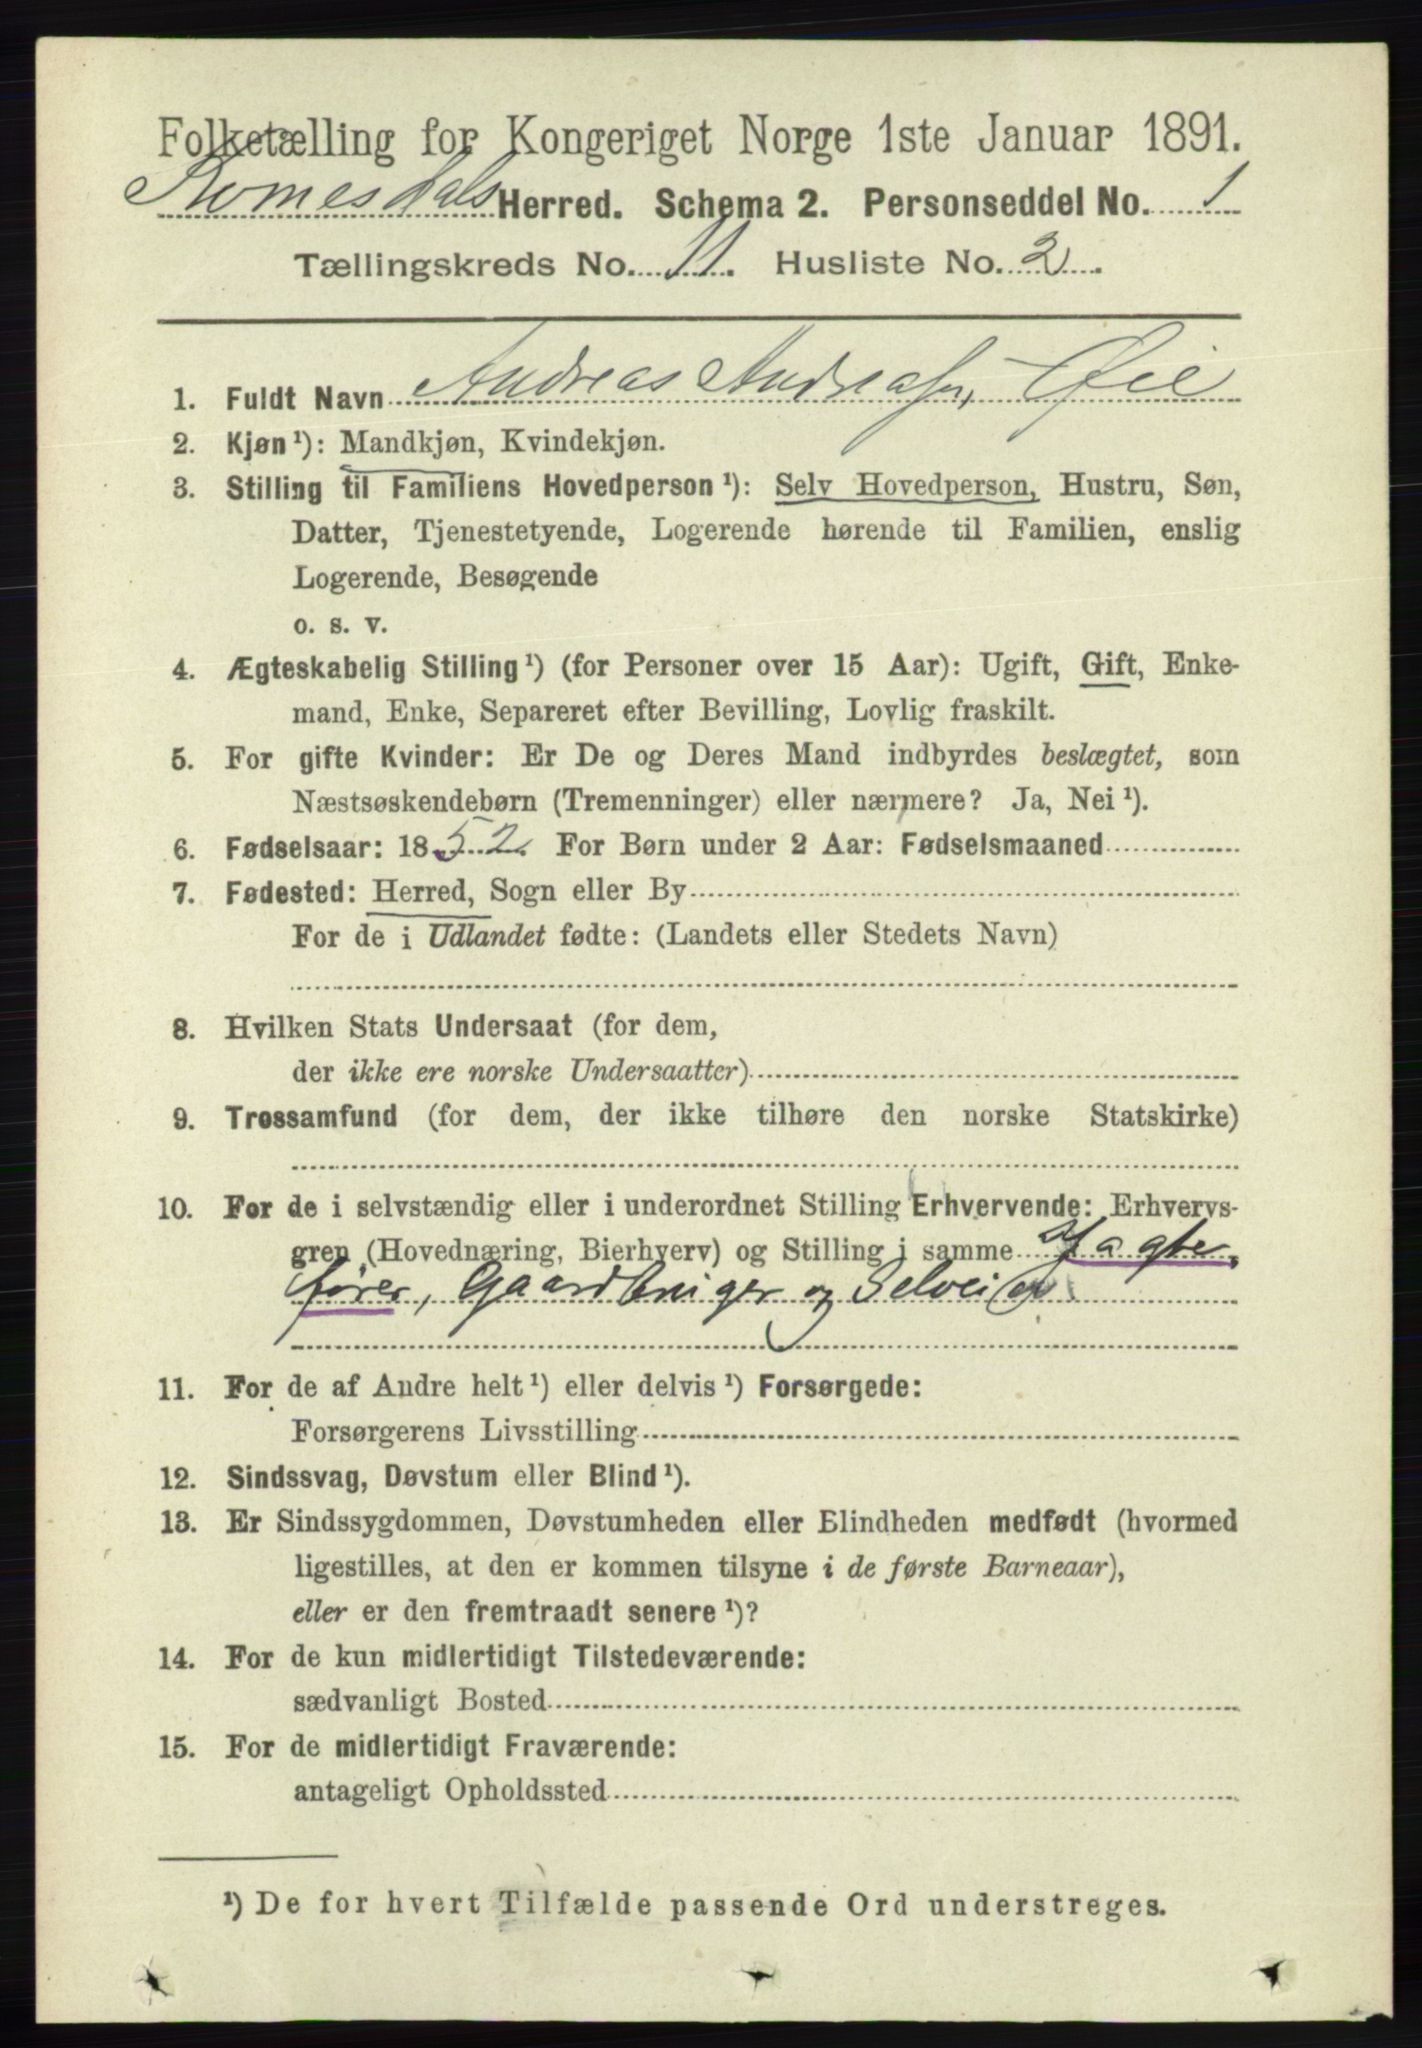 Folketælling for Kongeriget Norge 1ste Januar 1891.
Romesdals Herred. Schema 2. Personseddel No. 1
Tællingskreds No. 11. Husliste No. 2.
1. Fuldt Navn Andreas Andreasen, Øie
2. Kjøn ¹): Mandkjøn, Kvindekjøn.
3. Stilling til Familiens Hovedperson ¹): Selv Hovedperson, Hustru, Søn,
Datter, Tjenestetyende, Logerende hørende til Familien, enslig
Logerende, Besøgende
o. s. v.
4. Ægteskabelig Stilling ¹) (for Personer over 15 Aar): Ugift, Gift, Enke-
mand, Enke, Separeret efter Bevilling, Lovlig fraskilt.
5. For gifte Kvinder: Er De og Deres Mand indbyrdes beslægtet, som
Næstsøskendebørn (Tremenninger) eller nærmere? Ja, Nei ¹).
6. Fødselsaar: 1852. For Børn under 2 Aar: Fødselsmaaned
7. Fødested: Herred, Sogn eller By
For de i Udlandet fødte: (Landets eller Stedets Navn)
8. Hvilken Stats Undersaat (for dem,
der ikke ere norske Undersaatter)
9. Trossamfund (for dem, der ikke tilhøre den norske Statskirke)
10. For de i selvstændig eller i underordnet Stilling Erhvervende: Erhvervs-
gren (Hovednæring, Bierhverv) og Stilling i samme Jagte,
fører, Gaardbruger og Selveier
11. For de af Andre helt ¹) eller delvis ¹) Forsørgede:
Forsørgerens Livsstilling
12. Sindssvag, Døvstum eller Blind ¹).
13. Er Sindssygdommen, Døvstumheden eller Blindheden medfødt (hvormed
ligestilles, at den er kommen tilsyne i de første Barneaar),
eller er den fremtraadt senere ¹)?
14. For de kun midlertidigt Tilstedeværende:
sædvanligt Bosted
15. For de midlertidigt Fraværende:
antageligt Opholdssted
¹) De for hvert Tilfælde passende Ord understreges.